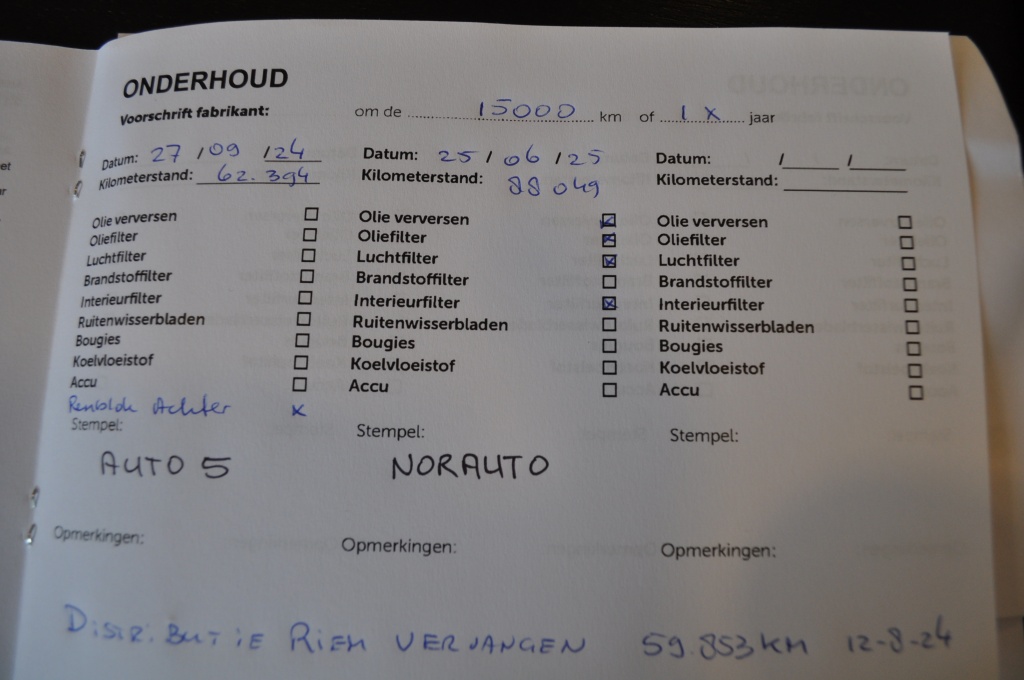 ONDERHOUD
Voorschrift fabrikant: om de 15000 km of 1 x jaar
Datum: 27 / 09 / 24
Kilometerstand: 62.394
Olie verversen
Oliefilter
Luchtfilter
Brandstoffilter
Interieurfilter
Ruitenwisserbladen
Bougies
Koelvloeistof
Accu
Achter x
Stempel:
AUTO 5
Opmerkingen:
Datum: 25 / 06 / 25
Kilometerstand: 88 049
Olie verversen
Oliefilter
Luchtfilter
Brandstoffilter
Interieurfilter
Ruitenwisserbladen
Bougies
Koelvloeistof
Accu
Stempel:
NORAUTO
Opmerkingen:
Datum: / /
Kilometerstand:
Olie verversen
Oliefilter
Luchtfilter
Brandstoffilter
Interieurfilter
Ruitenwisserbladen
Bougies
Koelvloeistof
Accu
Stempel:
Opmerkingen:
DISTRIBUTIE RIEM VERVANGEN 59.853 KM 12-8-24